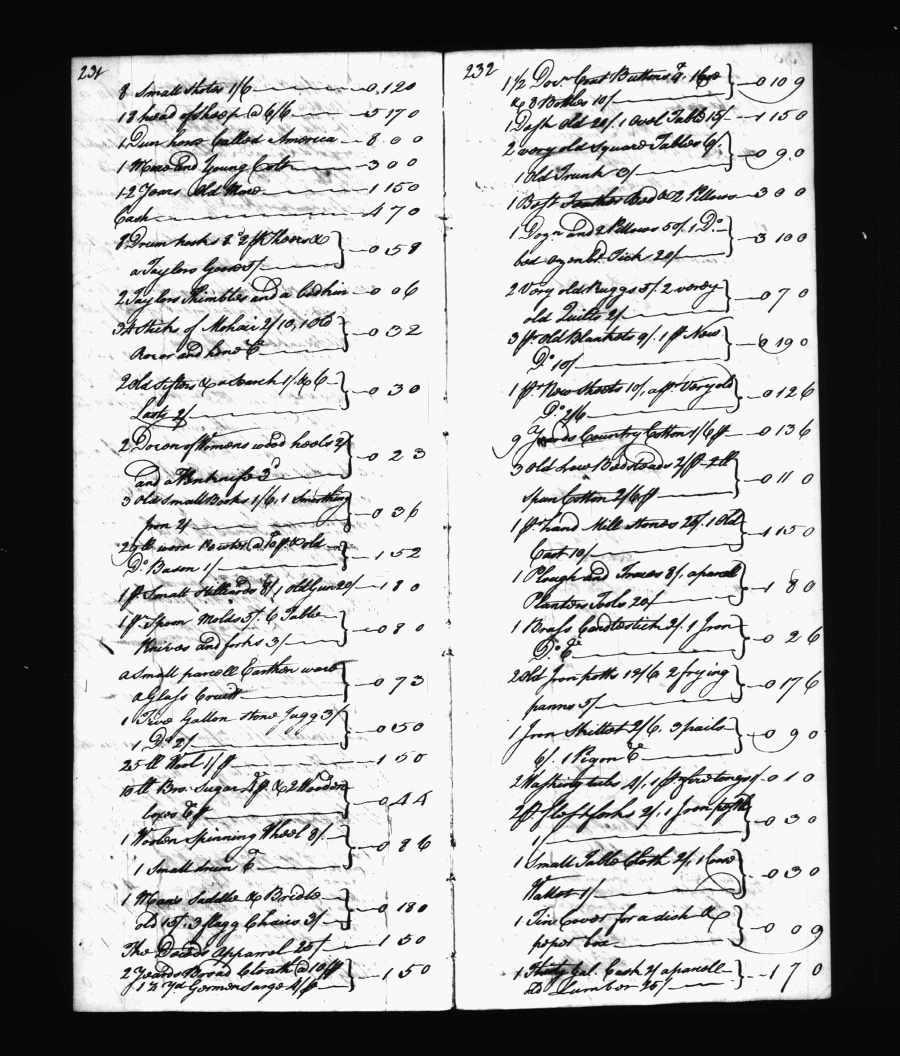 231
8 Small Shotes 1/6 — 0 12 0
18 head of Sheep @ 6/6 — 5 17 0
1 Dun horse Called America — 8 0 0
1 Mare and Young Colt — 3 0 0
1 2 Years Old Mare — 1 15 0
Cash — 4 7 0
a Taylors Goose 5/ — 0 5 8
2 Taylors Thimbles and a bodkin — 0 0 6
34 Sticks of Mohair 2/10, 1 Old
Razor and hone — 0 3 2
2 Old Sifters & a Search 1/. & 6
Lasts 2/ — 0 3 0
2 Dozen of Womens wood heels 2/
and a Penknife 3d — 0 2 3
3 Old Small Books 1/6, 1 Smoothing
Iron 2/ — 0 3 6
29 lb worn Pewter @ 10 p. & old
Do. Bason 1/ — 1 5 2
1 pr. Small Stilliards 8/, 1 old Gun 20/ — 1 8 0
1 pr Spoon Molds 5/. 6 Table
Knives and forks 3/ — 0 8 0
a Small parcell Earthen ware
a Glass Cruett — 0 7 3
1 Five Gallon Stone Jugg 3/
1 Do. 2/ — 0 5 0
25 lb Wool 1/ p — 1 5 0
10 lb Bro. Sugar 4 p. & 2 Wooden
boxes — 0 4 4
1 Woolen Spinning Wheel 8/
1 Small drum — 0 8 6
1 Mans Saddle & Bridle
old 15/. 3 flagg Chairs 3/ — 0 18 0
The Deceds Apparrel 25/ — 1 5 0
2 Yeards Broad Cloath @ 10/ p
1 3/4 Yd Germen Sarge 4/ p — 1 5 0
232
1 1/2 Dozn Coat Buttons
& 3 Bottles 10/ — 0 10 9
1 Desk Old 20/. 1 Ovel Table 15/ — 1 15 0
2 very old Square Tables 6/.
1 Old Trunk 3/ — 0 9 0
1 Best Feather Bed & 2 Pillows — 3 0 0
1 Do. and 2 Pillows 50/. 1 Do.
bed Tick 20/ — 3 10 0
2 Very old Ruggs 5/. 2 verey
old Quilts 2/ — 0 7 0
3 pr Old Blankets 9/. 1 pr New
Do. 10/ — 0 19 0
1 pr New Sheets 10/, a pr Very old
Do. 2/6 — 0 12 6
9 Yards Country Cotton 1/6 p — 0 13 6
3 Old Low Bedsteads 2/ p
Spun Cotton 2/6 p — 0 11 0
1 pr hand Mill Stones 25/. 1 Old
Cart 10/ — 1 15 0
1 Plough and Traces 8/, a parcell
Planters Tools 20/ — 1 8 0
1 Brass Candlestick 2/. 1 Iron
Do. — 0 2 6
2 Old Iron potts 12/6. 2 frying
panns 5/ — 0 17 6
1 Iron Skillet 2/6. 3 pails
6/. 1 Pigon — 0 9 0
2 Washing tubs — 0 10
2 pr flesh forks 2/. 1 Iron
1/ — 0 3 0
1 Small Table Cloth 2/.
Wallet 1/ — 0 3 0
1 Tin Cover for a dish &
peper box — 0 0 9
1 Thirty Gal. Cask 2/ a parcell
Lumber 25/ — 1 7 0